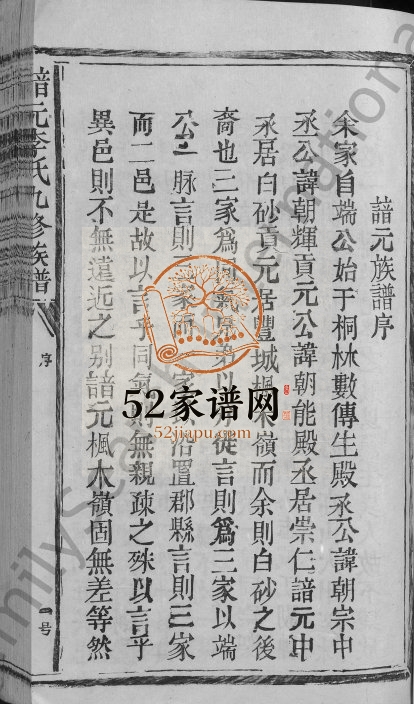 諳元族譜序
余家自端公始于桐林數傳生殿丞公諱朝宗中
丞公諱朝輝貢元公諱朝能殿丞居崇仁諳元中
丞居白砂貢元居豐城楓木嶺而余則白砂之後
裔也三家爲同氣以從言則爲三家以端
公一脉言則家而以沿置郡縣言則三家
而二邑是故以言乎同氣則無親疎之殊以言乎
異邑則不無遠近之别諳元楓木嶺固無差等然
諳元李氏九修族譜
序
一号
52家谱网
52jiapu.com
FamilySearch International